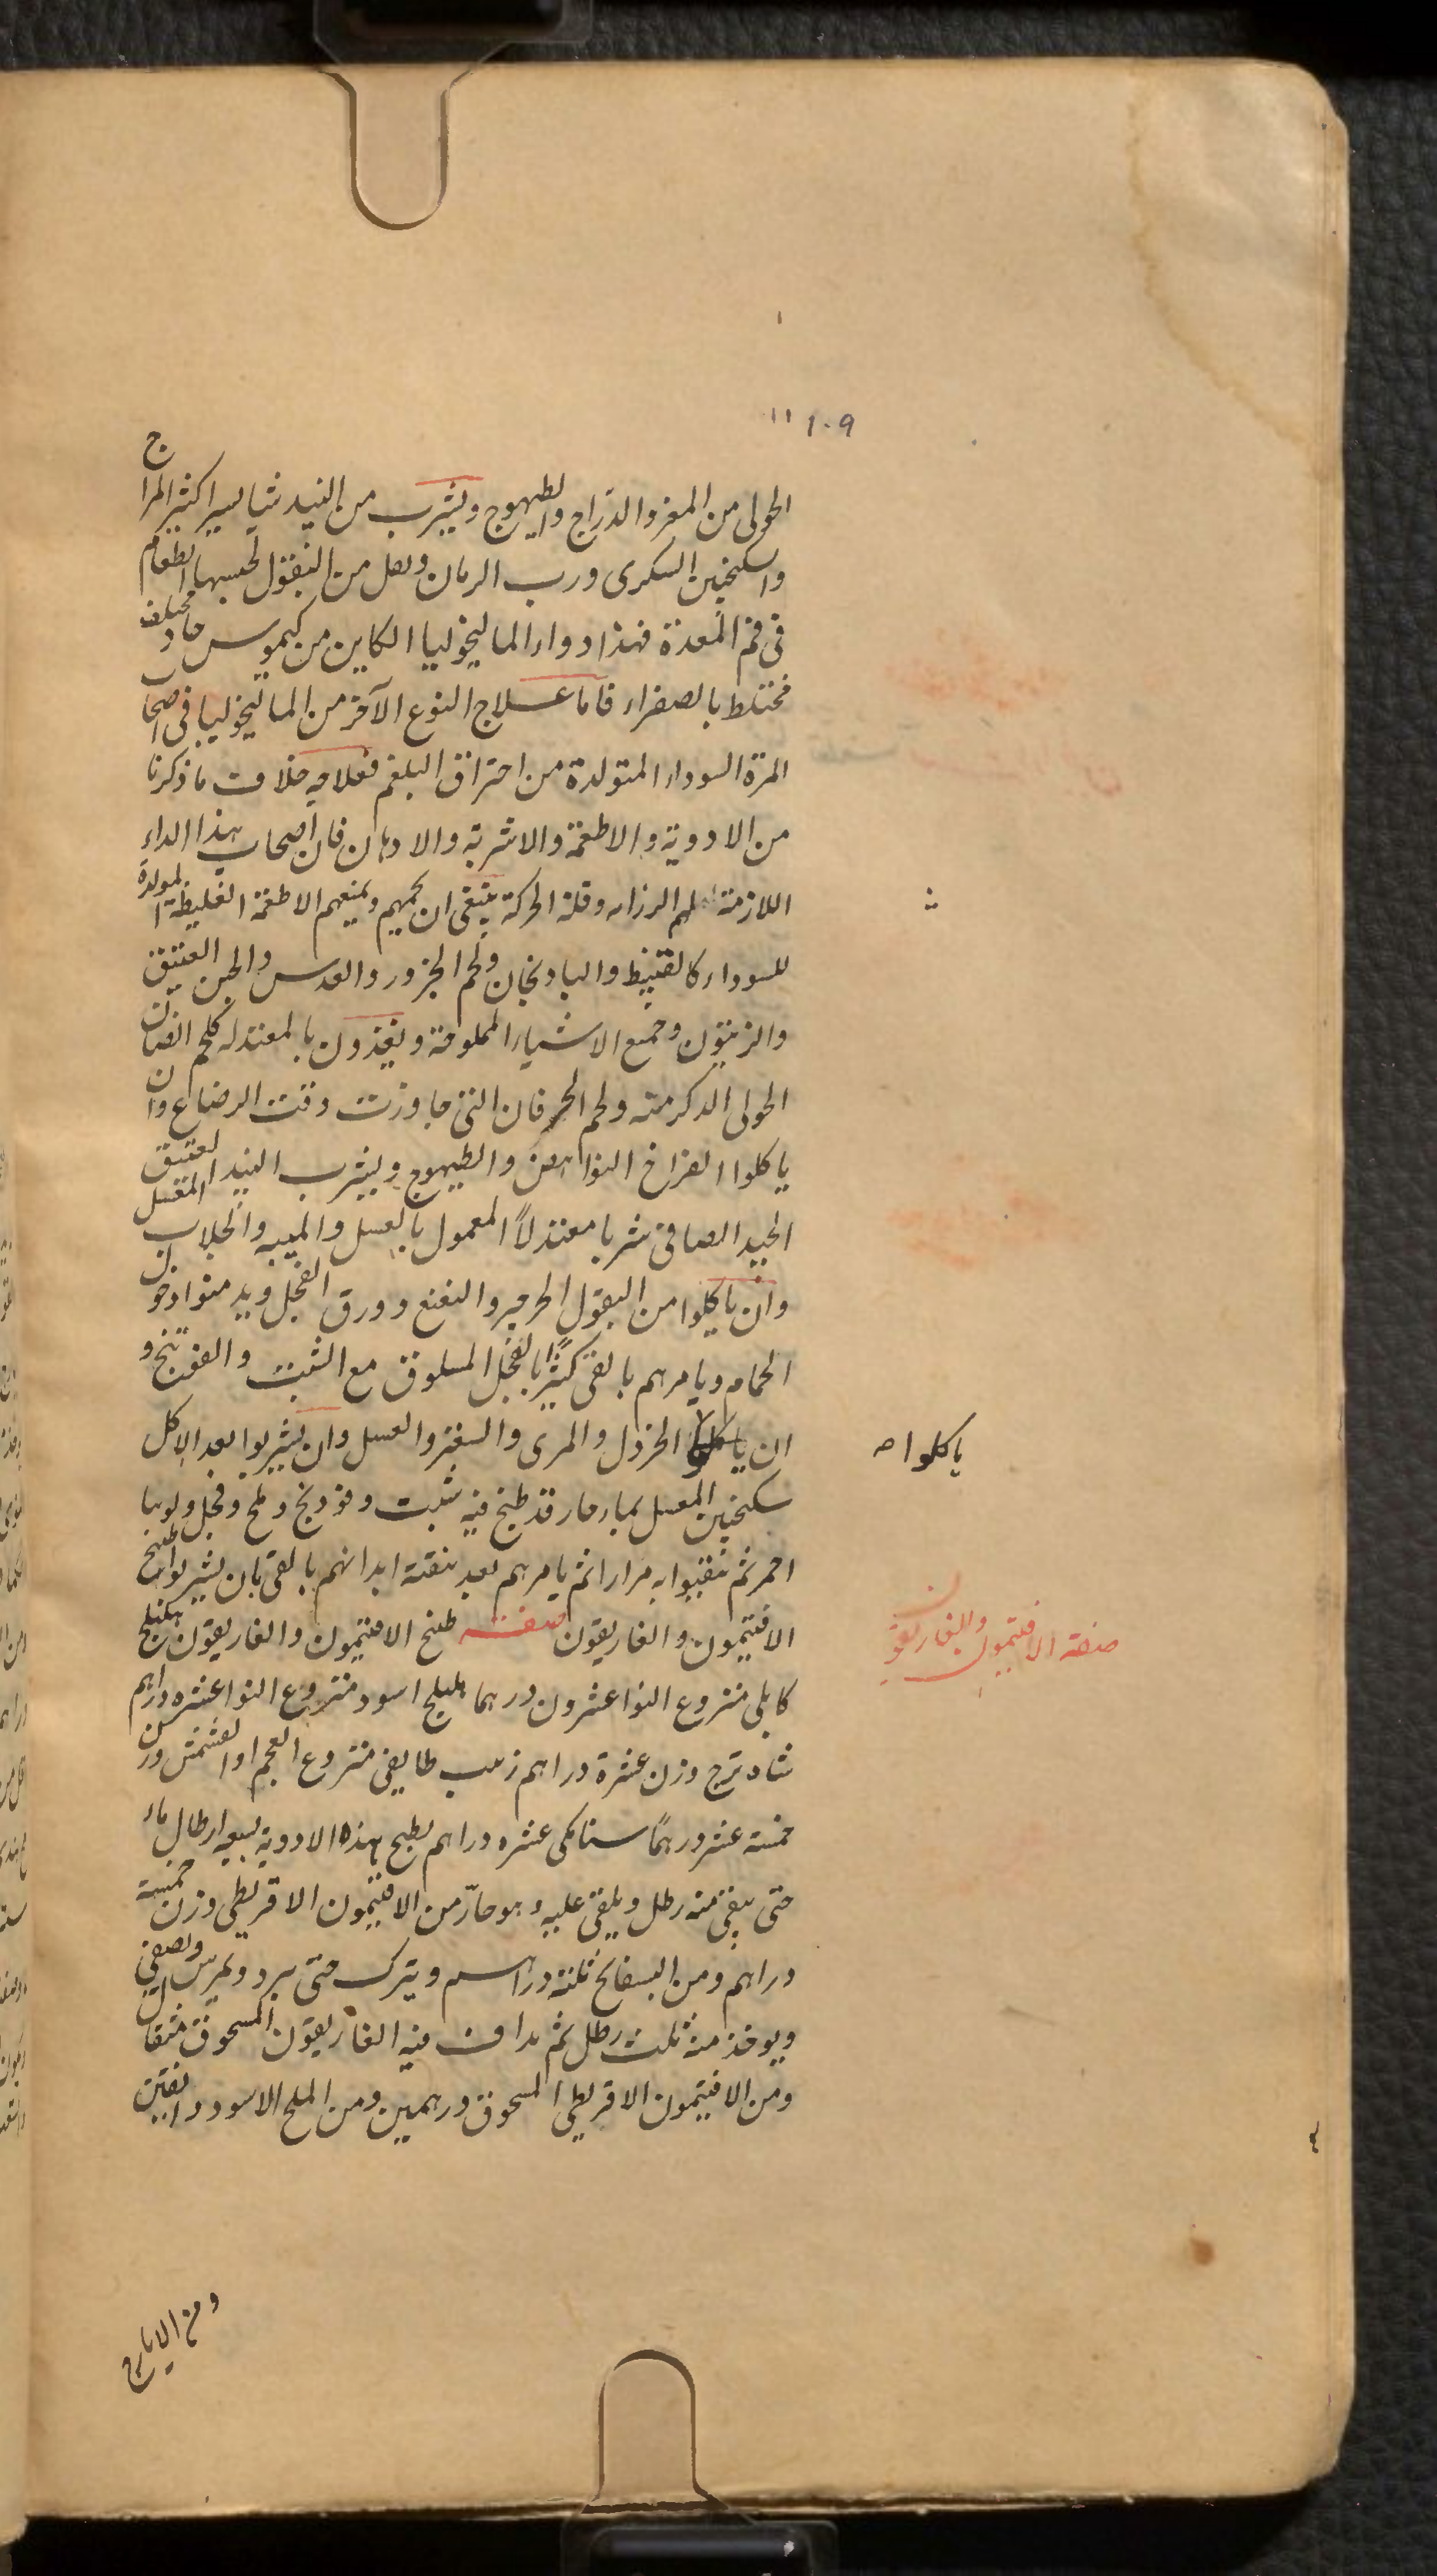 ١٠٩
الحولى من المعز والدراج والطيهوج ويشرب من النبيذ شيا يسيرا كثير المزاج
واسكنجبين السكرى ورب الرمان ويقل من البقول لحبسها الطعام
فى فم المعدة فهذا دواء الماليخوليا الكاين من كيموس حاد مختلف
مختلط بالصفراء فاما علاج النوع الآخر من الماليخوليا فى اصحاب
المرة السوداء المتولدة من احتراق البلغم فعلاجه خلاف ما ذكرنا
من الادوية والاطعمة والاشربة والادهان فان اصحاب هذا الداء
اللازمة لهم الرزانه وقلة الحركة ينبغى ان تحميهم وتمنعهم الاطعمة الغليظة المولدة
للسوداء كالقنبيط والبادنجان ولحم الجزور والعدس والجبن العتيق
والزيتون وجميع الاشياء المملوحة ويغذون بالمعتدله كلحم الضان
الحولى الذكر منه ولحم الخرفان التى جاوزت وقت الرضاع وان
ياكلوا الفراخ النواهض والطيهوج ويشرب النبيذ العتيق
الجيد الصافى شربا معتدلاً المعمول بالعسل والميبه والجلاب المعسل
وان ياكلوا من البقول الجرجير والنعنع وورق الفجل ويدمنوا دخول
الحمام ويامرهم بالقى كثيرًا بالفجل المسلوق مع الشبت والفوتنج و
ان ياكلوا الخردل والمرى والسعتر والعسل وان يشربوا بعد الاكل
ياكلوا صح
سكنجبين المعسل بماء حار قد طبخ فيه شبت وفودنج وملح وفجل ولوبيا
احمر ثم تقيوا به مرارا ثم يامرهم بعد تنقية ابدانهم بالقى بان يشربوا طبخ
الافتيمون والغاريقون صفته طبخ الافتيمون والغاريقون هليلج
صفة الافتيمون والغاريقون
كابلى منزوع النوا عشرون درهما هليلج اسود منزوع النوا عشره دراهم
شاه ترج وزن عشرة دراهم زبيب طايفى منزوع العجم او القشمش وزن
خمسة عشر درهمًا سنا مكى عشره دراهم يطبخ هذه الادوية بسبعه ارطال ماء
حتى يبقى منه رطل ويلقى عليه وهو حارّ من الافتيمون الاقريطى وزن خمسة
دراهم ومن البسفايج ثلثة دراهم ويترك حتى يبرد ويمرس ويصفى
ويوخذ منه ثلث رطل ثم يداف فيه الغاريقون المسحوق مثقال
ومن الافتيمون الاقريطى المسحوق درهمين ومن الملح الاسود دانقين
ومن الايارج